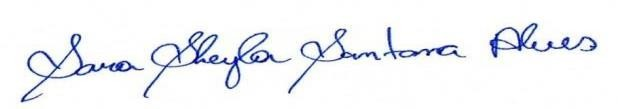 Sara Sheyla Santana Alves